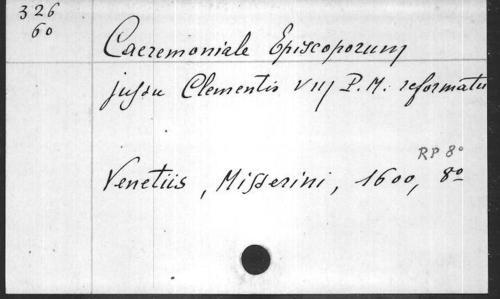 326
60
Caeremoniale Episcoporum
jussu Clementis VIII P.M. reformatu
RP 8º
Venetiis, Misserini, 1600, 8º